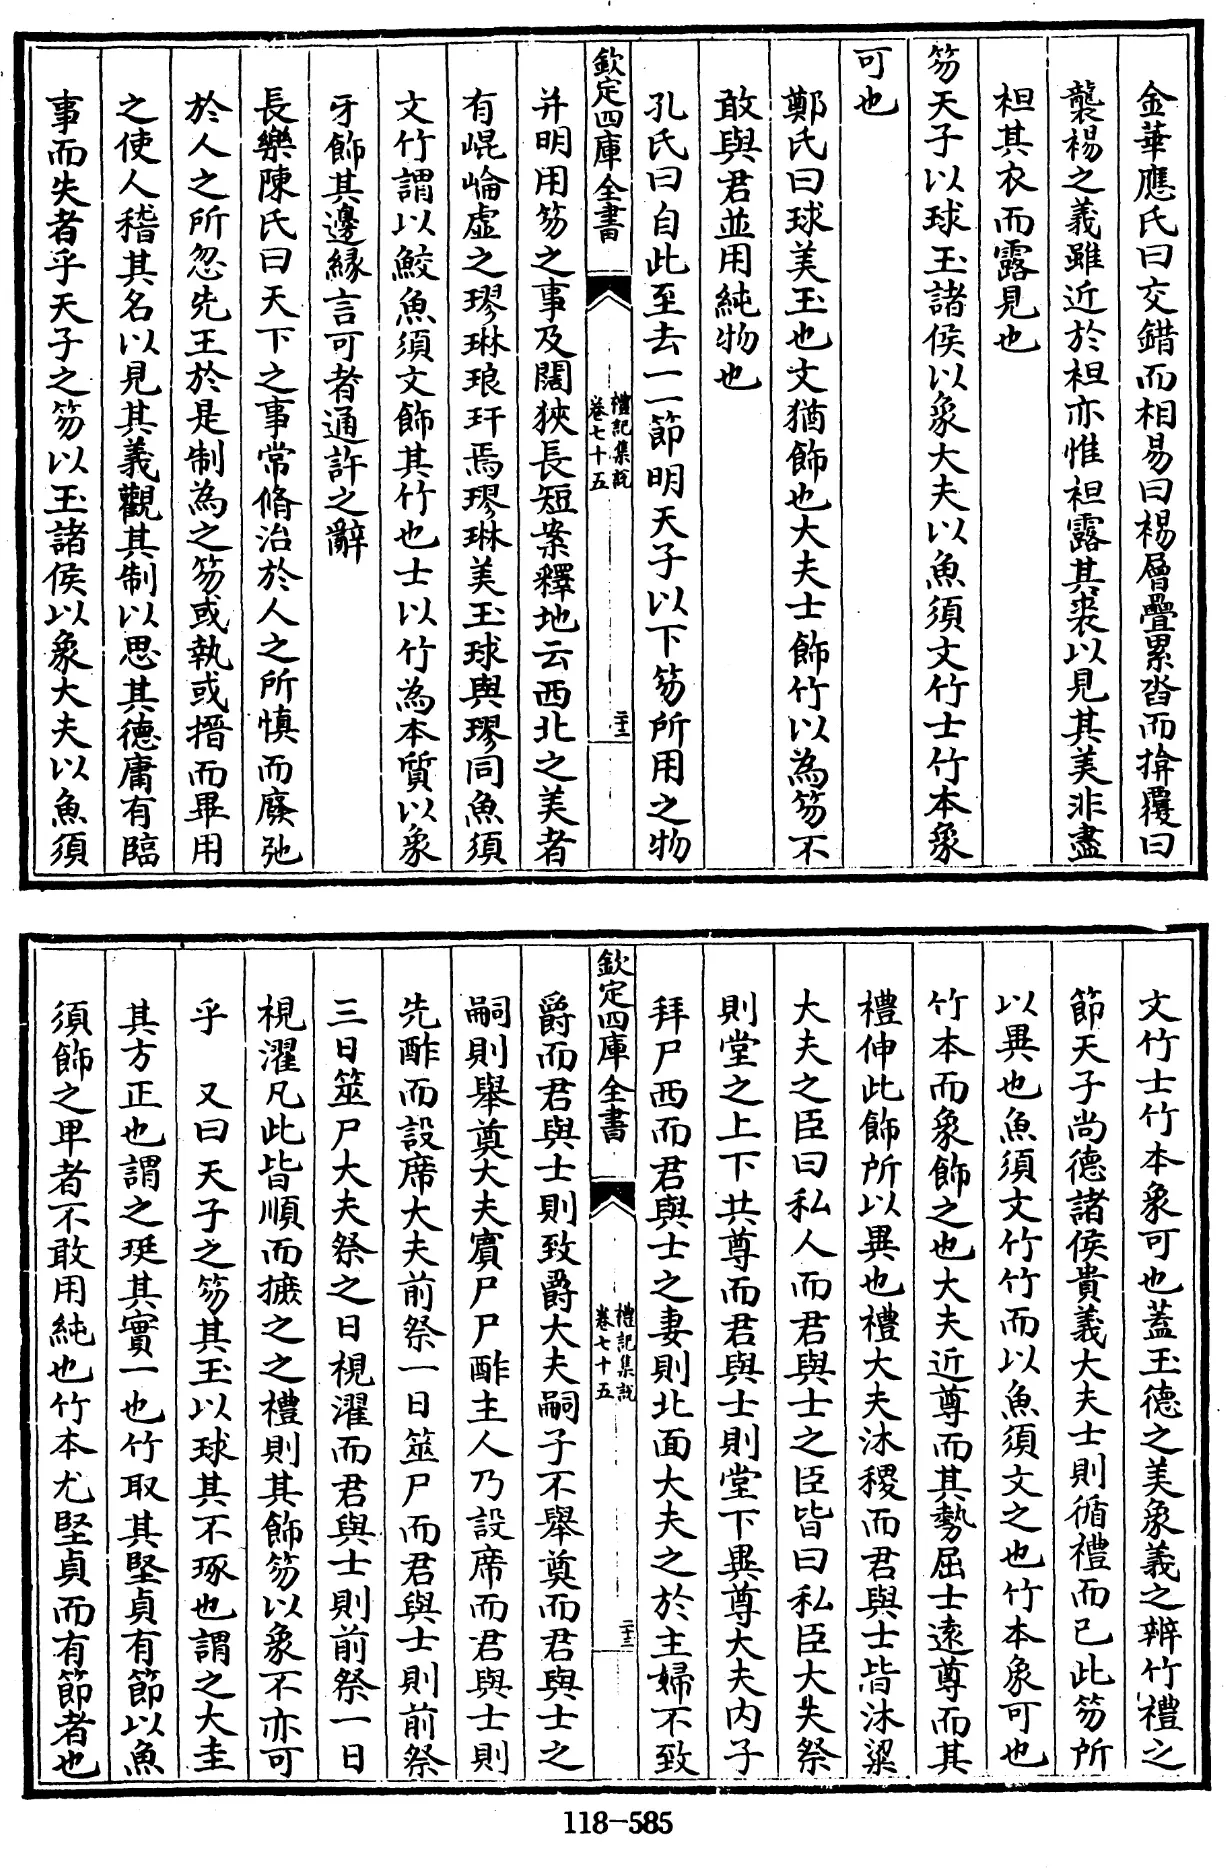 金華應氏曰交錯而相易曰裼層疊累沓而揜覆曰
襲裼之義雖近於袒亦惟袒露其裘以見其美非盡
袒其衣而露見也
笏天子以球玉諸侯以象大夫以魚須文竹士竹本象
可也
鄭氏曰球美玉也文猶飾也大夫士飾竹以為笏不
敢與君並用純物也
孔氏曰自此至去一一節明天子以下笏所用之物
欽定四庫全書
禮記集說
卷七十五
二十二
并明用笏之事及闊狹長短案釋地云西北之美者
有崐崘虛之璆琳琅玕焉璆琳美玉球與璆同魚須
文竹謂以鮫魚須文飾其竹也士以竹為本質以象
牙飾其邊緣言可者通許之辭
長樂陳氏曰天下之事常脩治於人之所慎而廢弛
於人之所忽先王於是制為之笏或執或搢而畢用
之使人稽其名以見其義觀其制以思其德庸有臨
事而失者乎天子之笏以玉諸侯以象大夫以魚須
文竹士竹本象可也蓋玉德之美象義之辨竹禮之
節天子尚德諸侯貴義大夫士則循禮而已此笏所
以異也魚須文竹竹而以魚須文之也竹本象可也
竹本而象飾之也大夫近尊而其勢屈士遠尊而其
禮伸此飾所以異也禮大夫沐稷而君與士皆沐粱
大夫之臣曰私人而君與士之臣皆曰私臣大夫祭
則堂之上下共尊而君與士則堂下異尊大夫內子
拜尸西而君與士之妻則北面大夫之於主婦不致
欽定四庫全書
禮記集說
卷七十五
二十三
爵而君與士則致爵大夫嗣子不舉奠而君與士之
嗣則舉奠大夫賓尸尸酢主人乃設席而君與士則
先酢而設席大夫前祭一日筮尸而君與士則前祭
三日筮尸大夫祭之日視濯而君與士則前祭一日
視濯凡此皆順而摭之之禮則其飾笏以象不亦可
乎　又曰天子之笏其玉以球其不琢也謂之大圭
其方正也謂之珽其實一也竹取其堅貞有節以魚
須飾之卑者不敢用純也竹本尤堅貞而有節者也
118-585